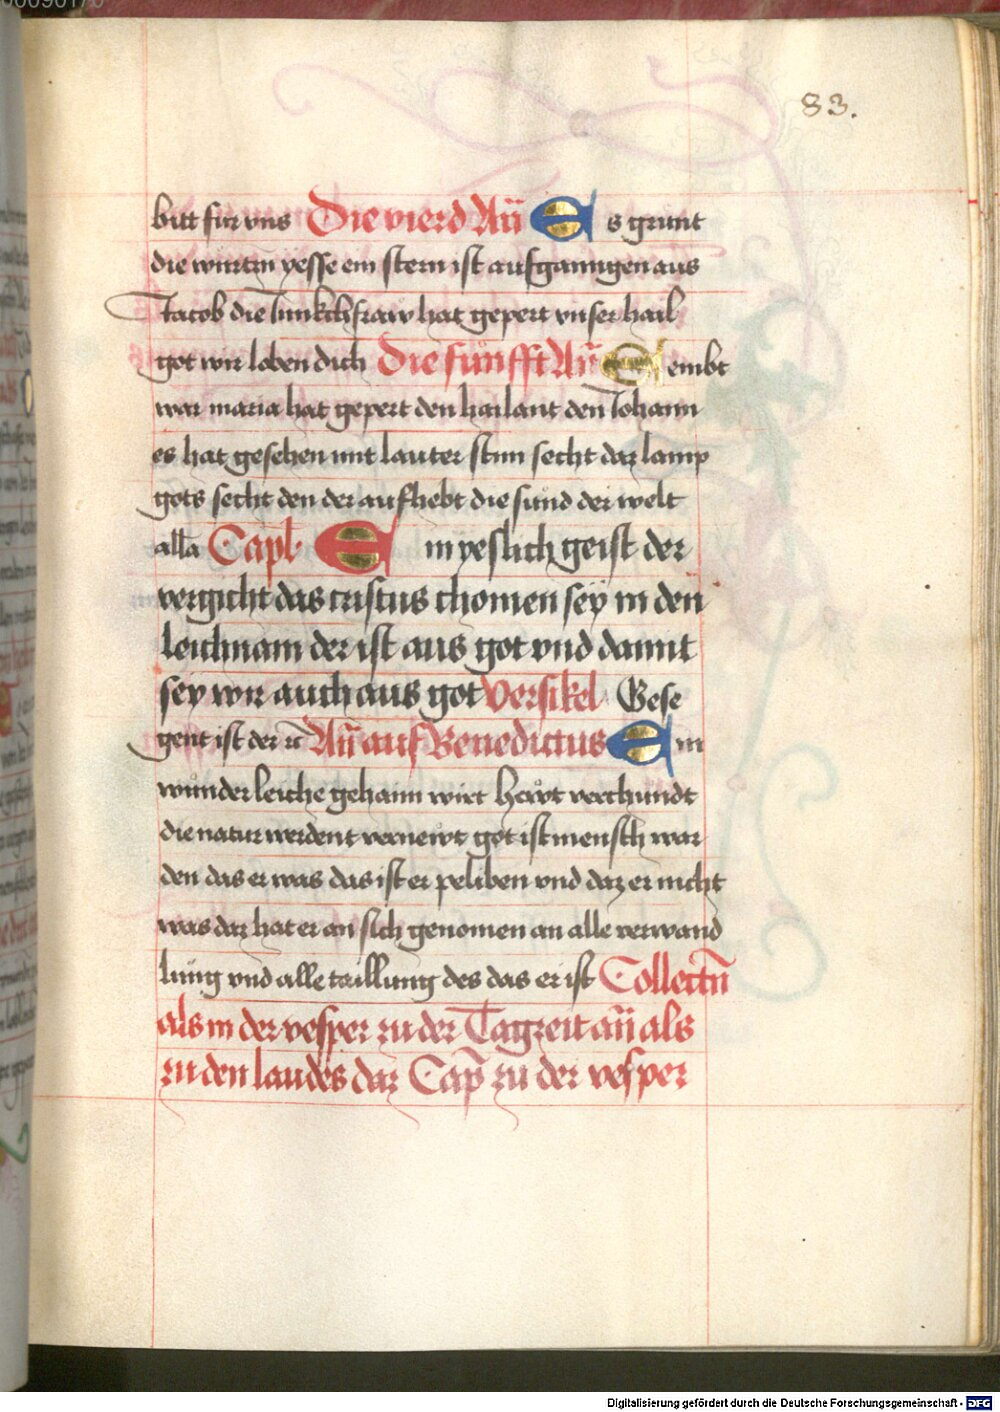 83.
bitt fur vns Die vierd Añ Es grunt
die wurtzn yesse ein stern ist aufganngen aus
Jacob die Junkchfraw hat gepert vnser hail
got wir loben dich Die fünfft Añ Nembt
war maria hat gepert den hailant den Johann
es hat gesehen mit lauter stim secht daz lamp
gots secht den der aufhebt die sund der welt
alla Capl. Ein yeslich geist der
vergicht das cristus chomen sey in den
leichnam der ist aus got vnd damit
sey wir auch aus got Versikel Gese
gent ist der ꝛc Añ auf Benedictus Ein
wunderleiche gehaim wirt hewt verchundt
die natur werdent vernewt got ist mensch war
den das er was das ist er peliben vnd daz er nicht
was daz hat er an sich genomen an alle verwand
lung vnd alle taillung des das er ist Collectn
als in der vesper zu der Tagzeit añ als
zu den laudes daz Cap zu der vesper
Digitalisierung gefördert durch die Deutsche Forschungsgemeinschaft - DFG